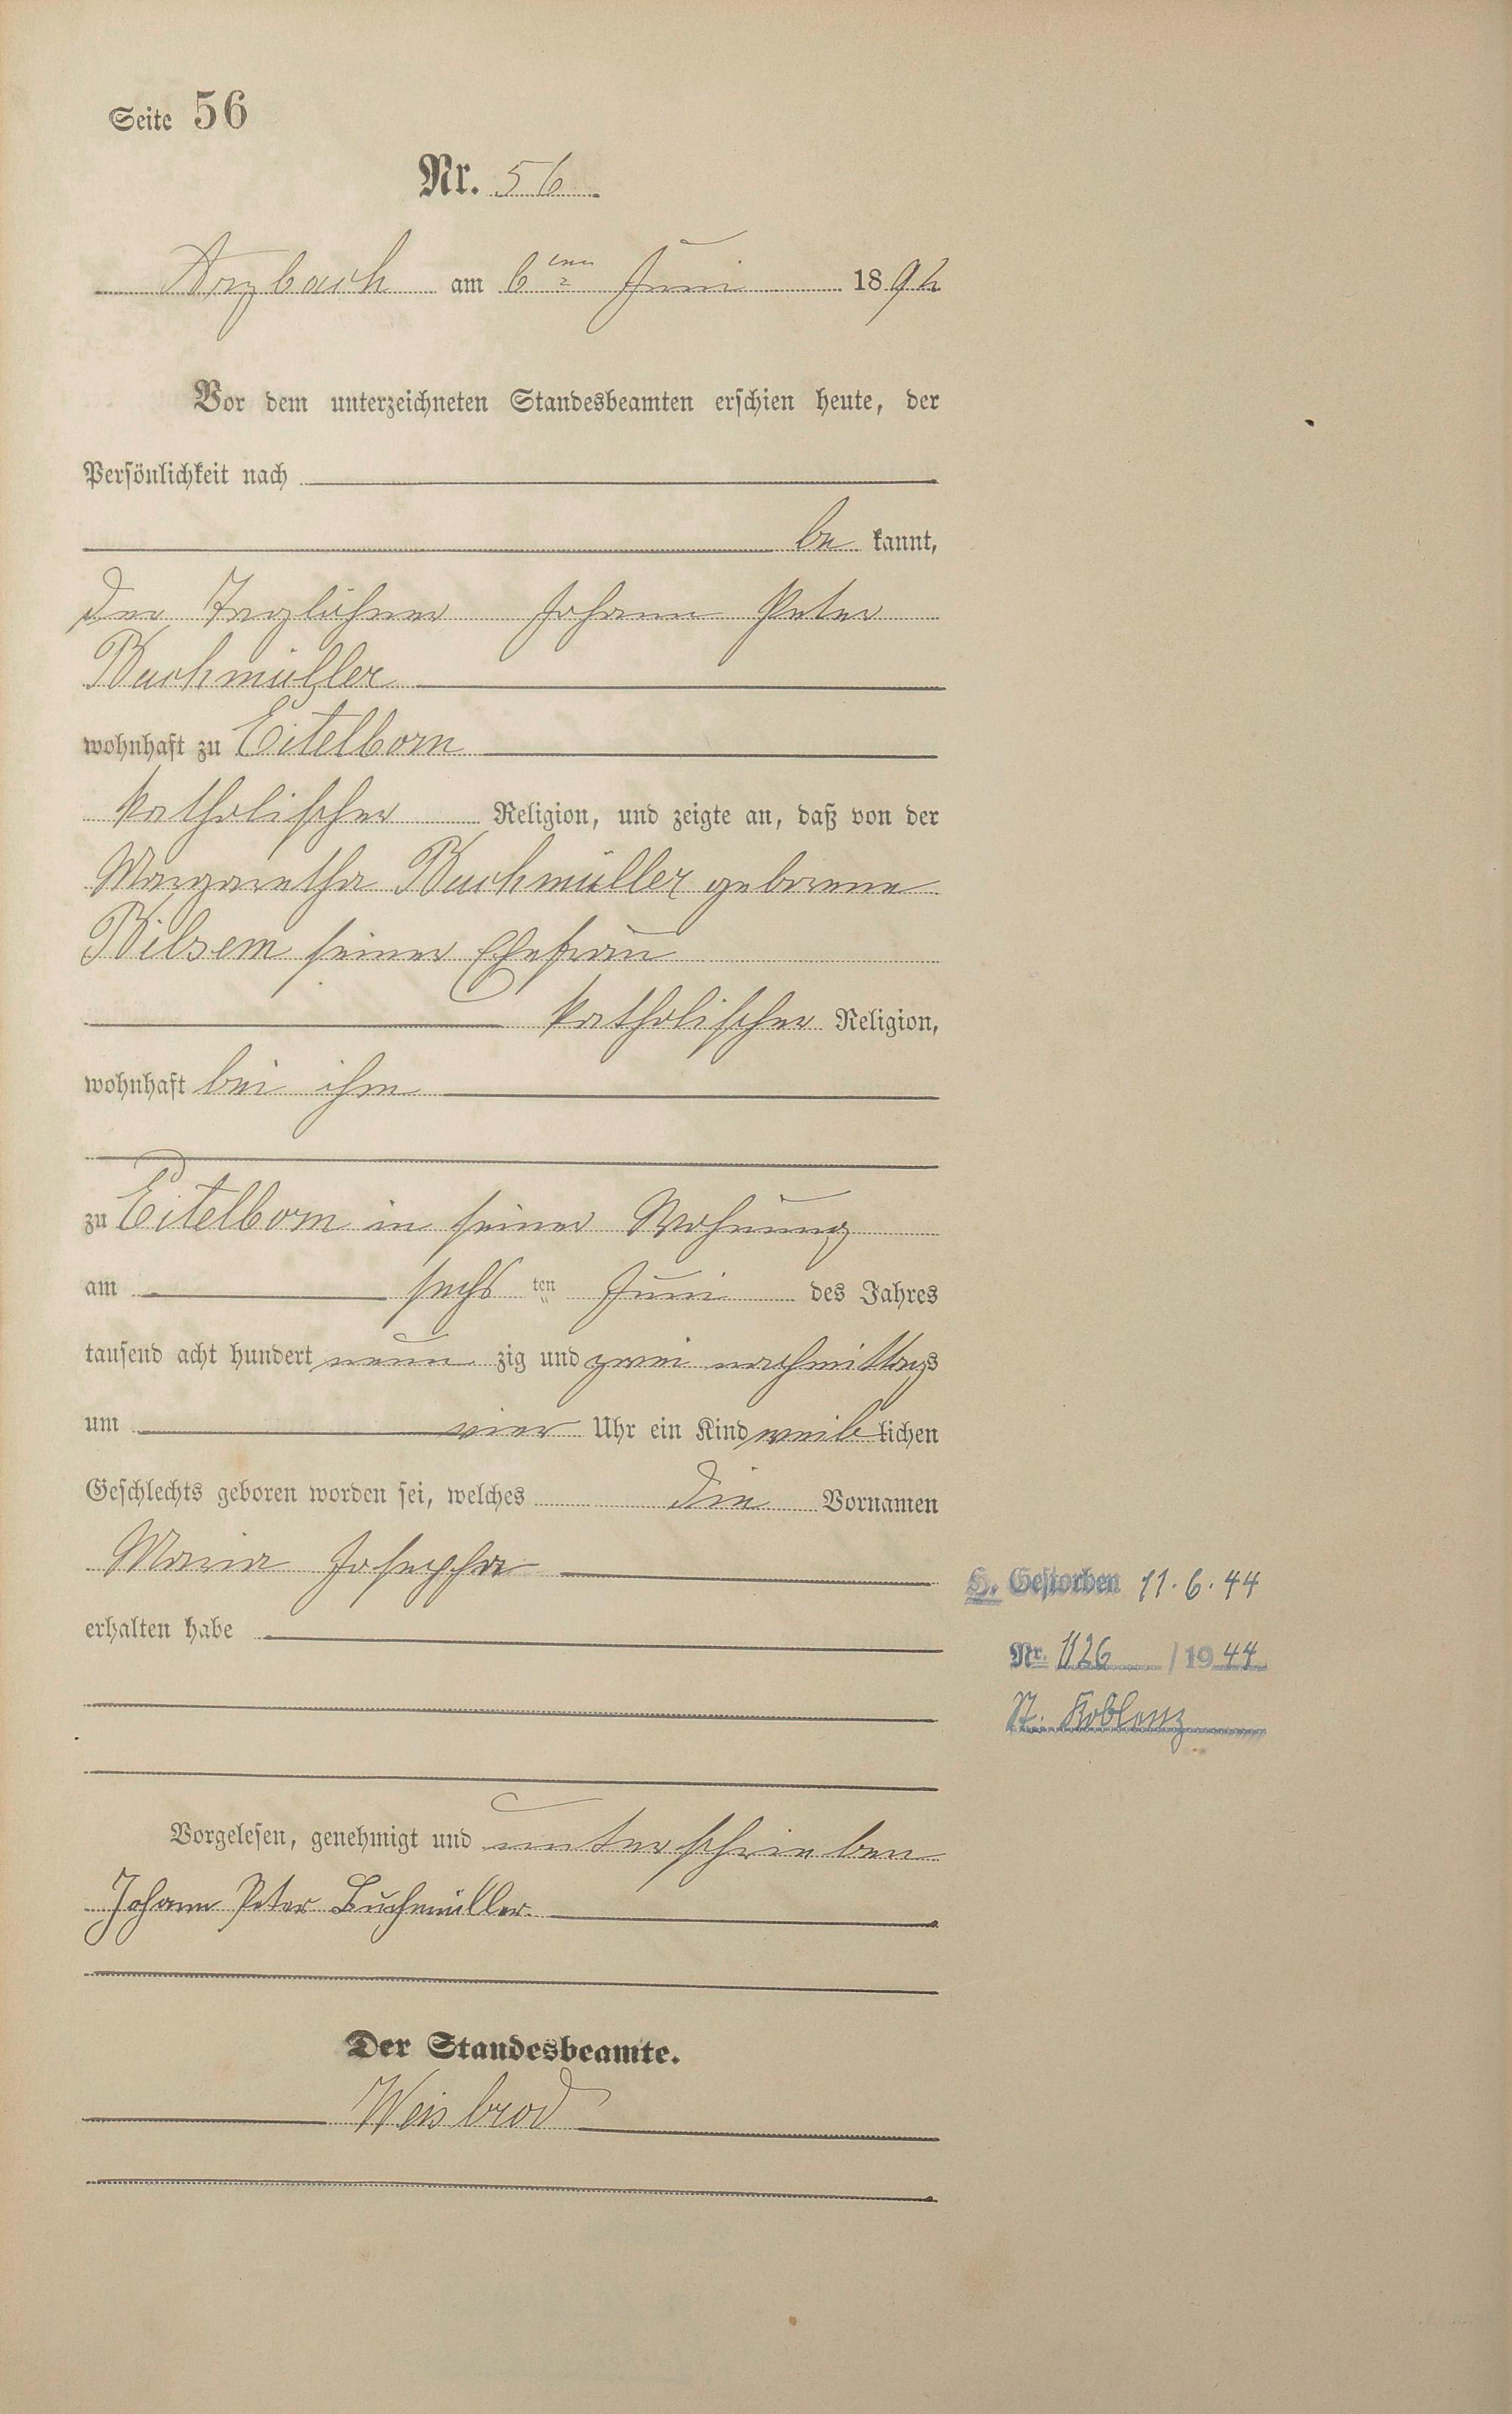 Seite 56
Nr. 56
Arzbach am 6ten Juni 1892
Vor dem unterzeichneten Standesbeamten erschien heute, der
Persönlichkeit nach
be kannt,
der Taglöhner Johann Peter
Buchmüller
wohnhaft zu Eitelborn
katholischer Religion, und zeigte an, daß von der
Margaretha Buchmüller geborene
Bilsem seiner Ehefrau
katholischer Religion,
wohnhaft bei ihm
zu Eitelborn in seiner Wohnung
am sechs ten Juni des Jahres
tausend acht hundert neun zig und zwei nachmittags
um vier Uhr ein Kind weib lichen
Geschlechts geboren worden sei, welches die Vornamen
Maria Josepha
H. Gestorben 11.6.44
erhalten habe
Nr. 1126 / 1944
St. Koblenz
Vorgelesen, genehmigt und unterschrieben
Johann Peter Buchmüller.
Der Standesbeamte.
Weisbrod